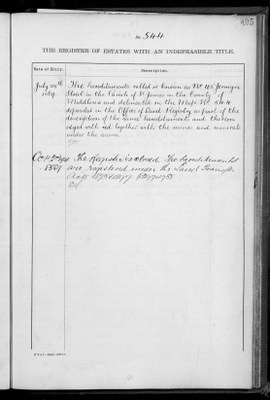 No. 544
THE REGISTER OF ESTATES WITH AN INDEFEASIBLE TITLE.
Date of Entry.
Description.
July
The hereditaments called or known as No 45 Jermyn
Street in the Parish of St James in the County of
Middlesex and delineated in the Map No 544
deposited in the Office of Land Registry as part of the
description of the said hereditaments and thereon
edged with red together with the mines and minerals
under the same
The Register is closed. The hereditaments
are registered under the Land Transfer
Acts